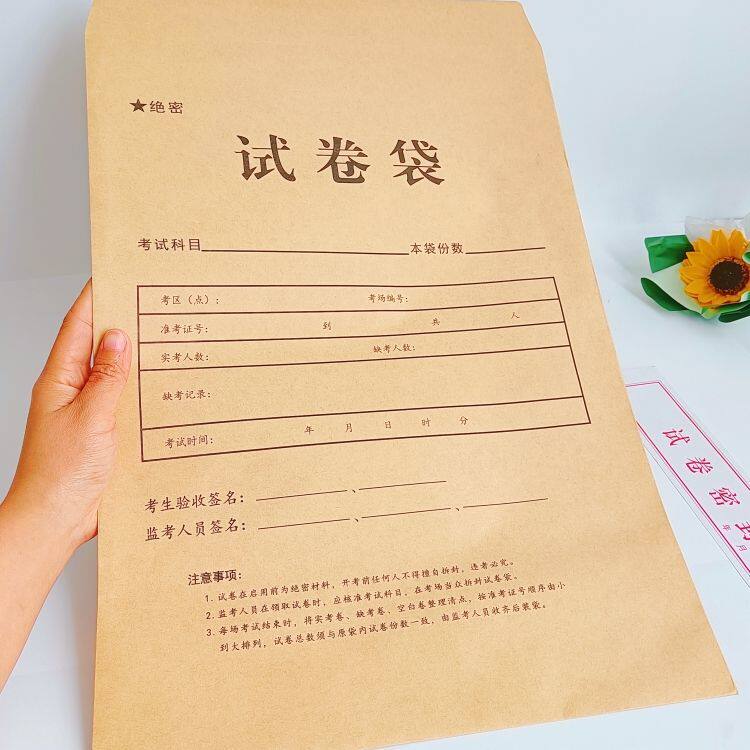 ★绝密
试卷袋
考试科目 本袋份数
考区（点）： 考场编号：
准考证号： 到 共 人
实考人数： 缺考人数：
缺考记录：
考试时间： 年 月 日 时 分
考生验收签名： 、
监考人员签名： 、 、
注意事项：
1. 试卷在启用前为绝密材料，开考前任何人不得擅自拆封，违者必究。
2. 监考人员在领取试卷时，应核准考试科目，在考场当众拆封试卷袋。
3. 每场考试结束时，将实考卷、缺考卷、空白卷整理清点，按准考证号顺序由小
到大排列，试卷总数须与原袋内试卷份数一致，由监考人员收齐后装袋。
试卷密封
年 月